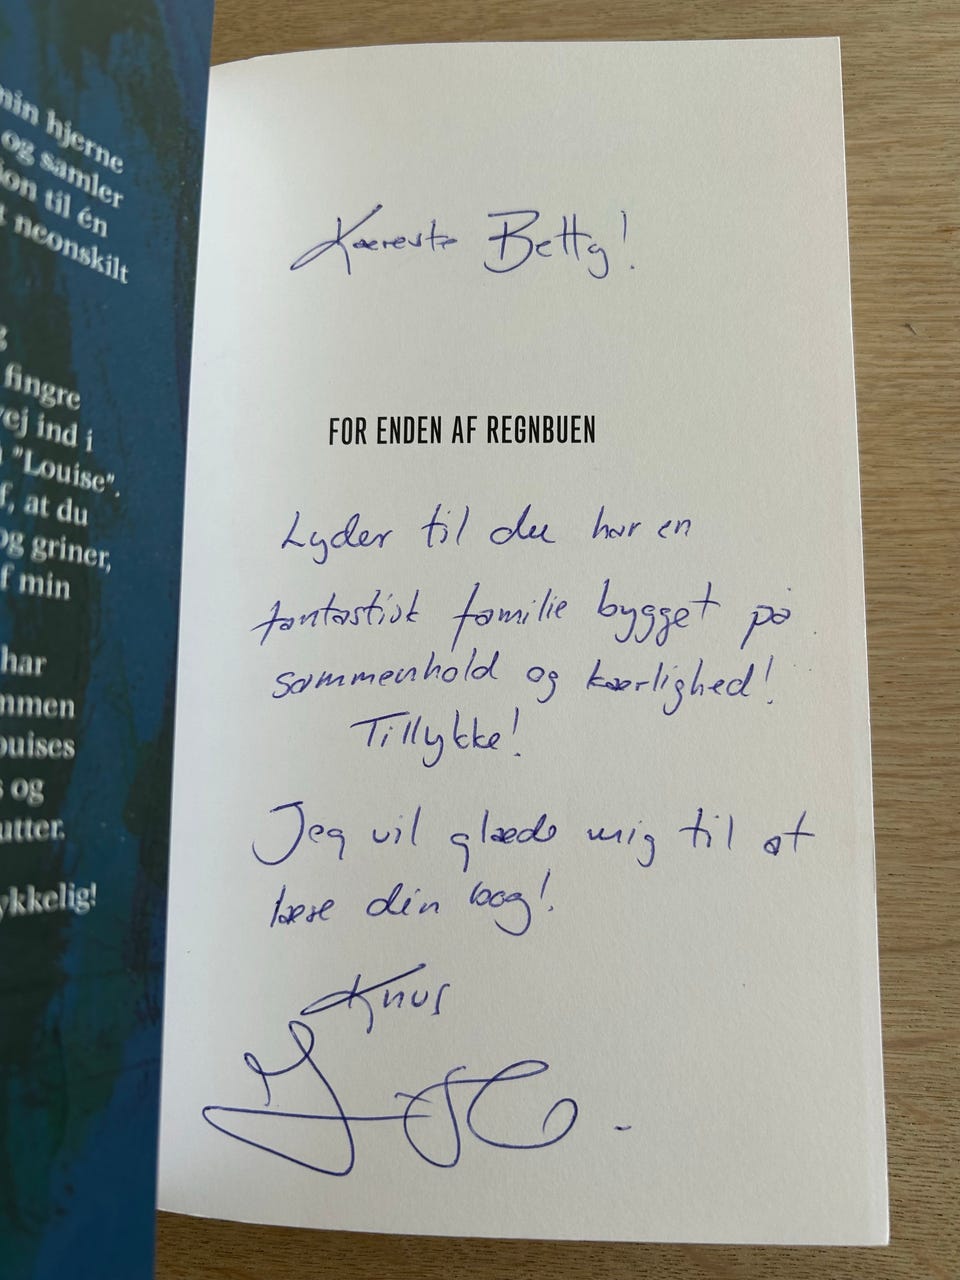 min hjerne
og samler
ion til én
t neonskilt
fingre
vej ind i
"Louise".
f, at du
og griner,
f min
har
mmen
ouises
og
utter.
ykkelig!
Kæreste Betty!
FOR ENDEN AF REGNBUEN
Lyder til du har en
fantastisk familie bygget på
sammenhold og kærlighed!
Tillykke!
Jeg vil glæde mig til at
læse din bog!
Knus